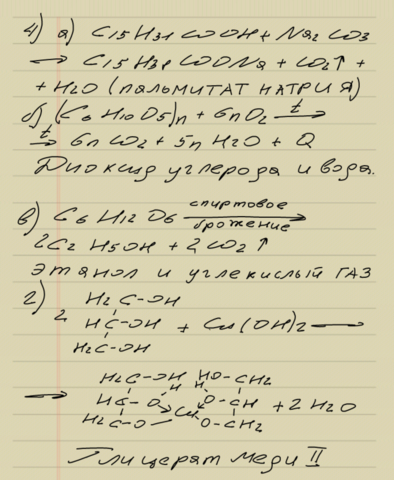 4) а) C15H31COOH + Na2CO3
→ C15H31COONa + CO2↑ +
+ H2O (пальмитат натрия)
б) (C6H10O5)n + 6nO2 t→
t→ 6nCO2 + 5nH2O + Q
Диоксид углерода и вода.
в) C6H12O6 спиртовое брожение→
2C2H5OH + 2CO2↑
этанол и углекислый газ
г) H2C-OH
2 HC-OH + Cu(OH)2 →
H2C-OH
H2C-OH HO-CH2
→ HC-O H Cu H O-CH + 2H2O
H2C-O O-CH2
Глицерат меди II